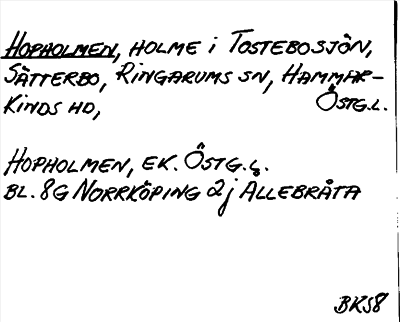 HOPHOLMEN, HOLME i TOSTEBOSJÖN,
SÄTTERBO, RINGARUMS SN, HAMMAR-
KINDS HD, ÖSTG.L.
HOPHOLMEN, EK. ÖSTG.L.
BL. 8G NORRKÖPING 2j ALLEBRÅTA
BKS8